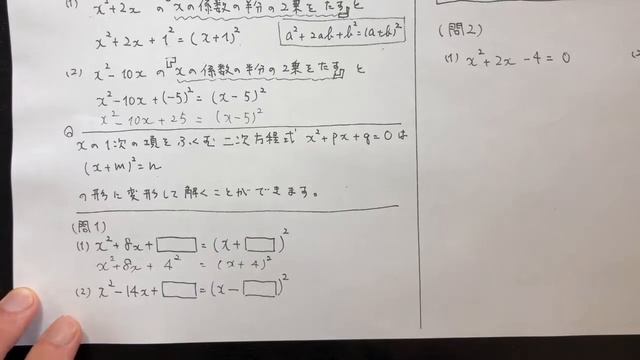 (1) x²+2x の xの係数の半分の2乗をたすと
x²+2x+1²=(x+1)²
a²+2ab+b²=(a±b)²
(2) x²-10x の xの係数の半分の2乗をたすと
x²-10x+(-5)²=(x-5)²
x²-10x+25=(x-5)²
xの1次の項をふくむ二次方程式 x²+px+q=0は
(x+m)²=n
の形に変形して解くことができます。
(問1)
(1) x²+8x+□=(x+□)²
x²+8x+4²=(x+4)²
(2) x²-14x+□=(x-□)²
(問2)
(1) x²+2x-4=0